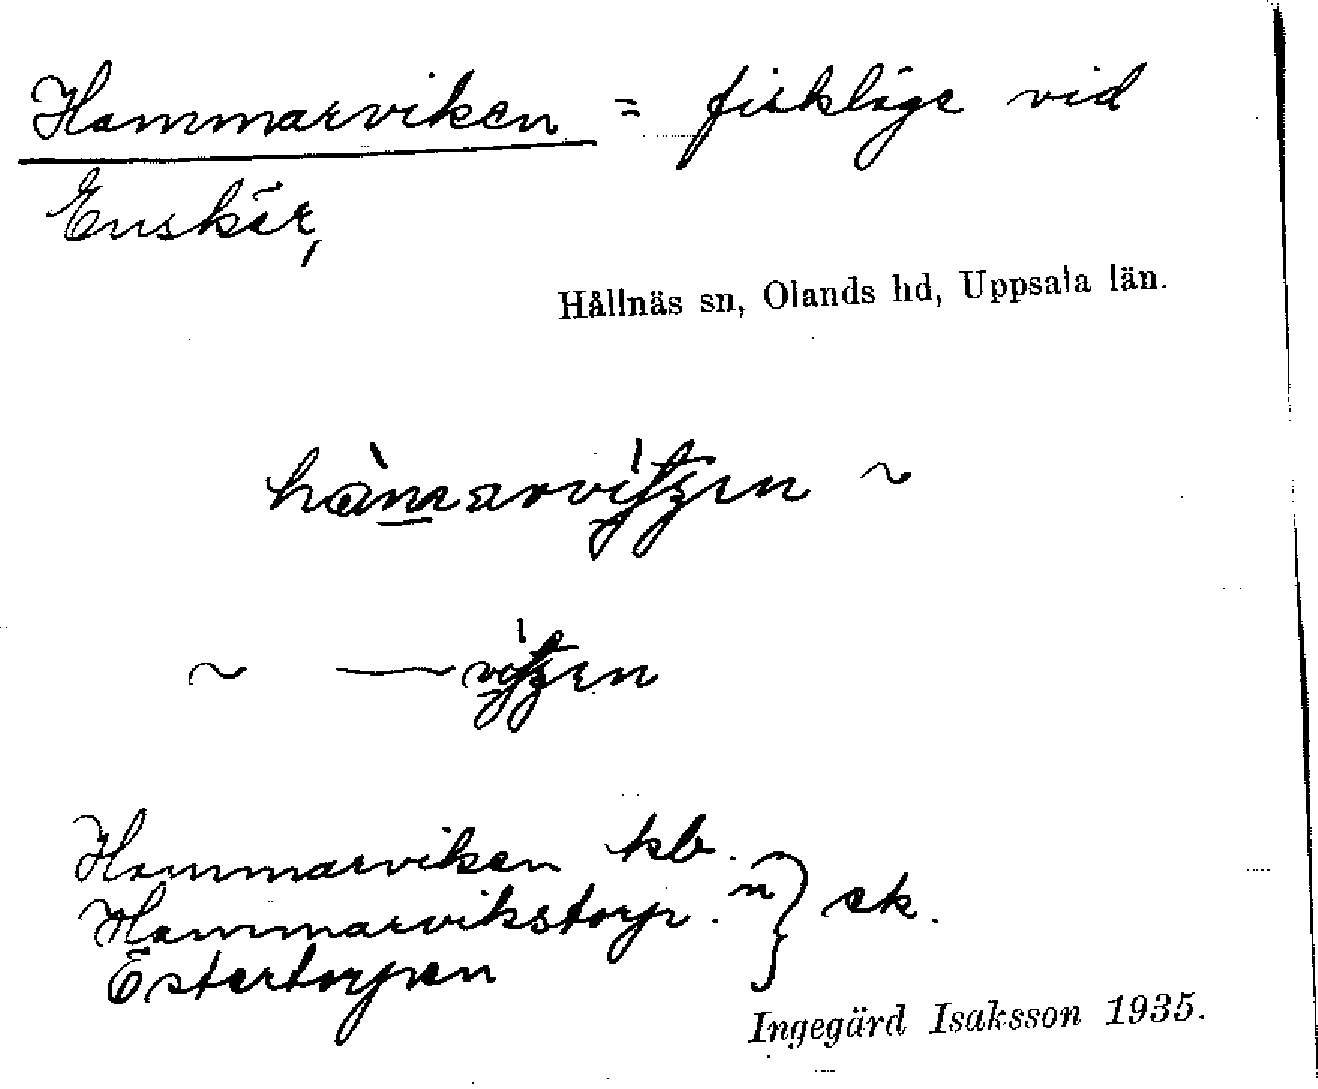 Hammarviken = fiskläge vid
Enskär,
Hållnäs sn, Olands hd, Uppsala län.
~
~ —
Hammarviken kb.
Hammarvikstorp. " } ek.
Estertorpen
Ingegärd Isaksson 1935.